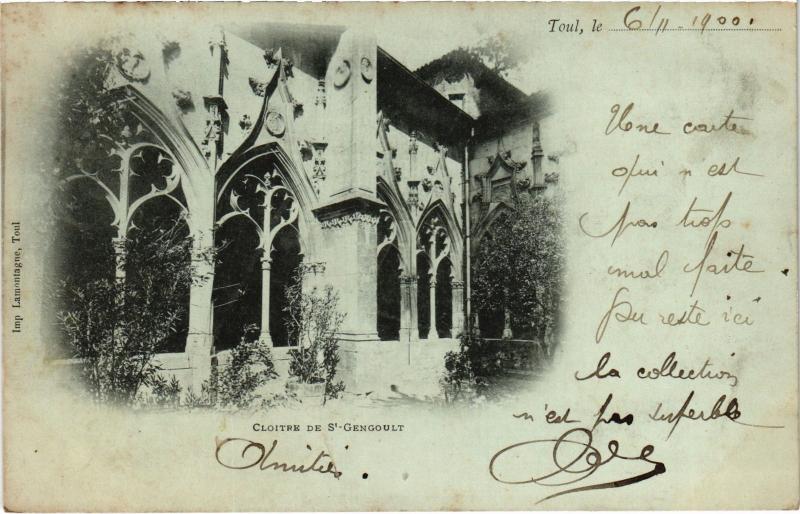 Toul, le 6/11 1900.
Une carte
qui n'est
pas trop
mal faite.
Du reste ici
la collection
n'est pas superbe
Imp Lamontagne, Toul
CLOITRE DE St-GENGOULT
Amitiés.